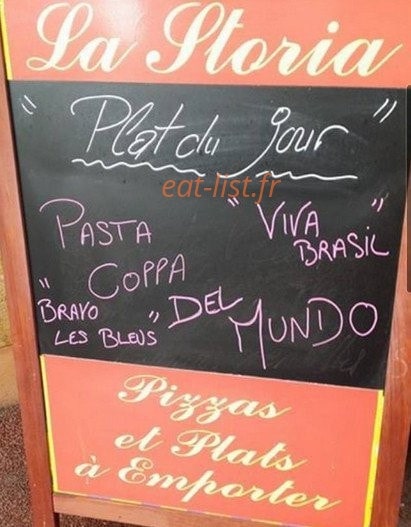 La Storia
" Plat du jour "
eat-list.fr
PASTA
" VIVA BRASIL "
COPPA
" BRAVO LES BLEUS "
DEL
MUNDO
Pizzas
et Plats
à Emporter